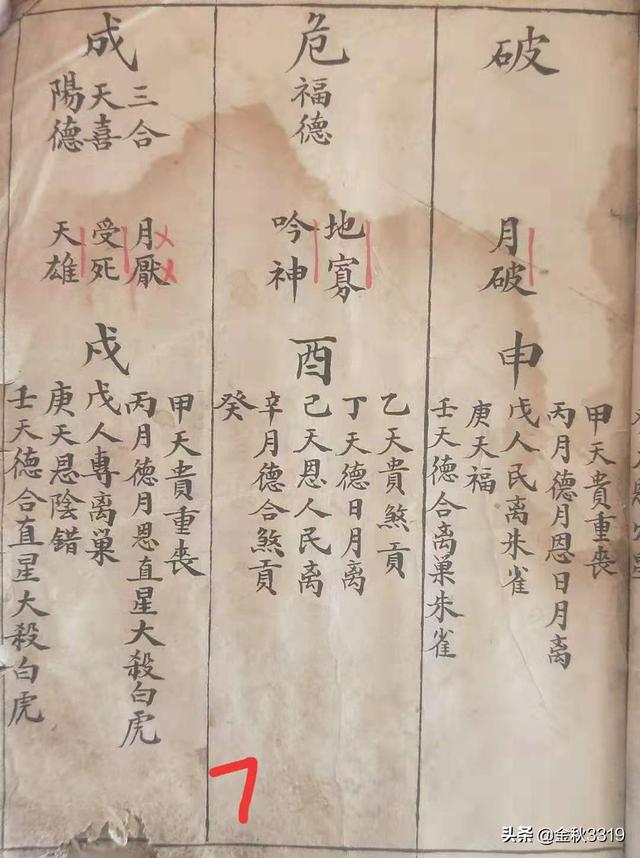 破
月破
申
甲天貴重喪
丙月德月恩日月离
戊人民离朱雀
庚天福
壬天德合离巢朱雀
危
福德
地寡
吟神
酉
乙天貴煞貢
丁天德日月离
己天恩人民离
辛月德合煞貢
癸
成
三合
天喜
陽德
月厭
受死
天雄
戍
甲天貴重喪
丙月德月恩直星大殺白虎
戊人專离巢
庚天恩陰錯
壬天德合直星大殺白虎
7
头条 @金秋3319